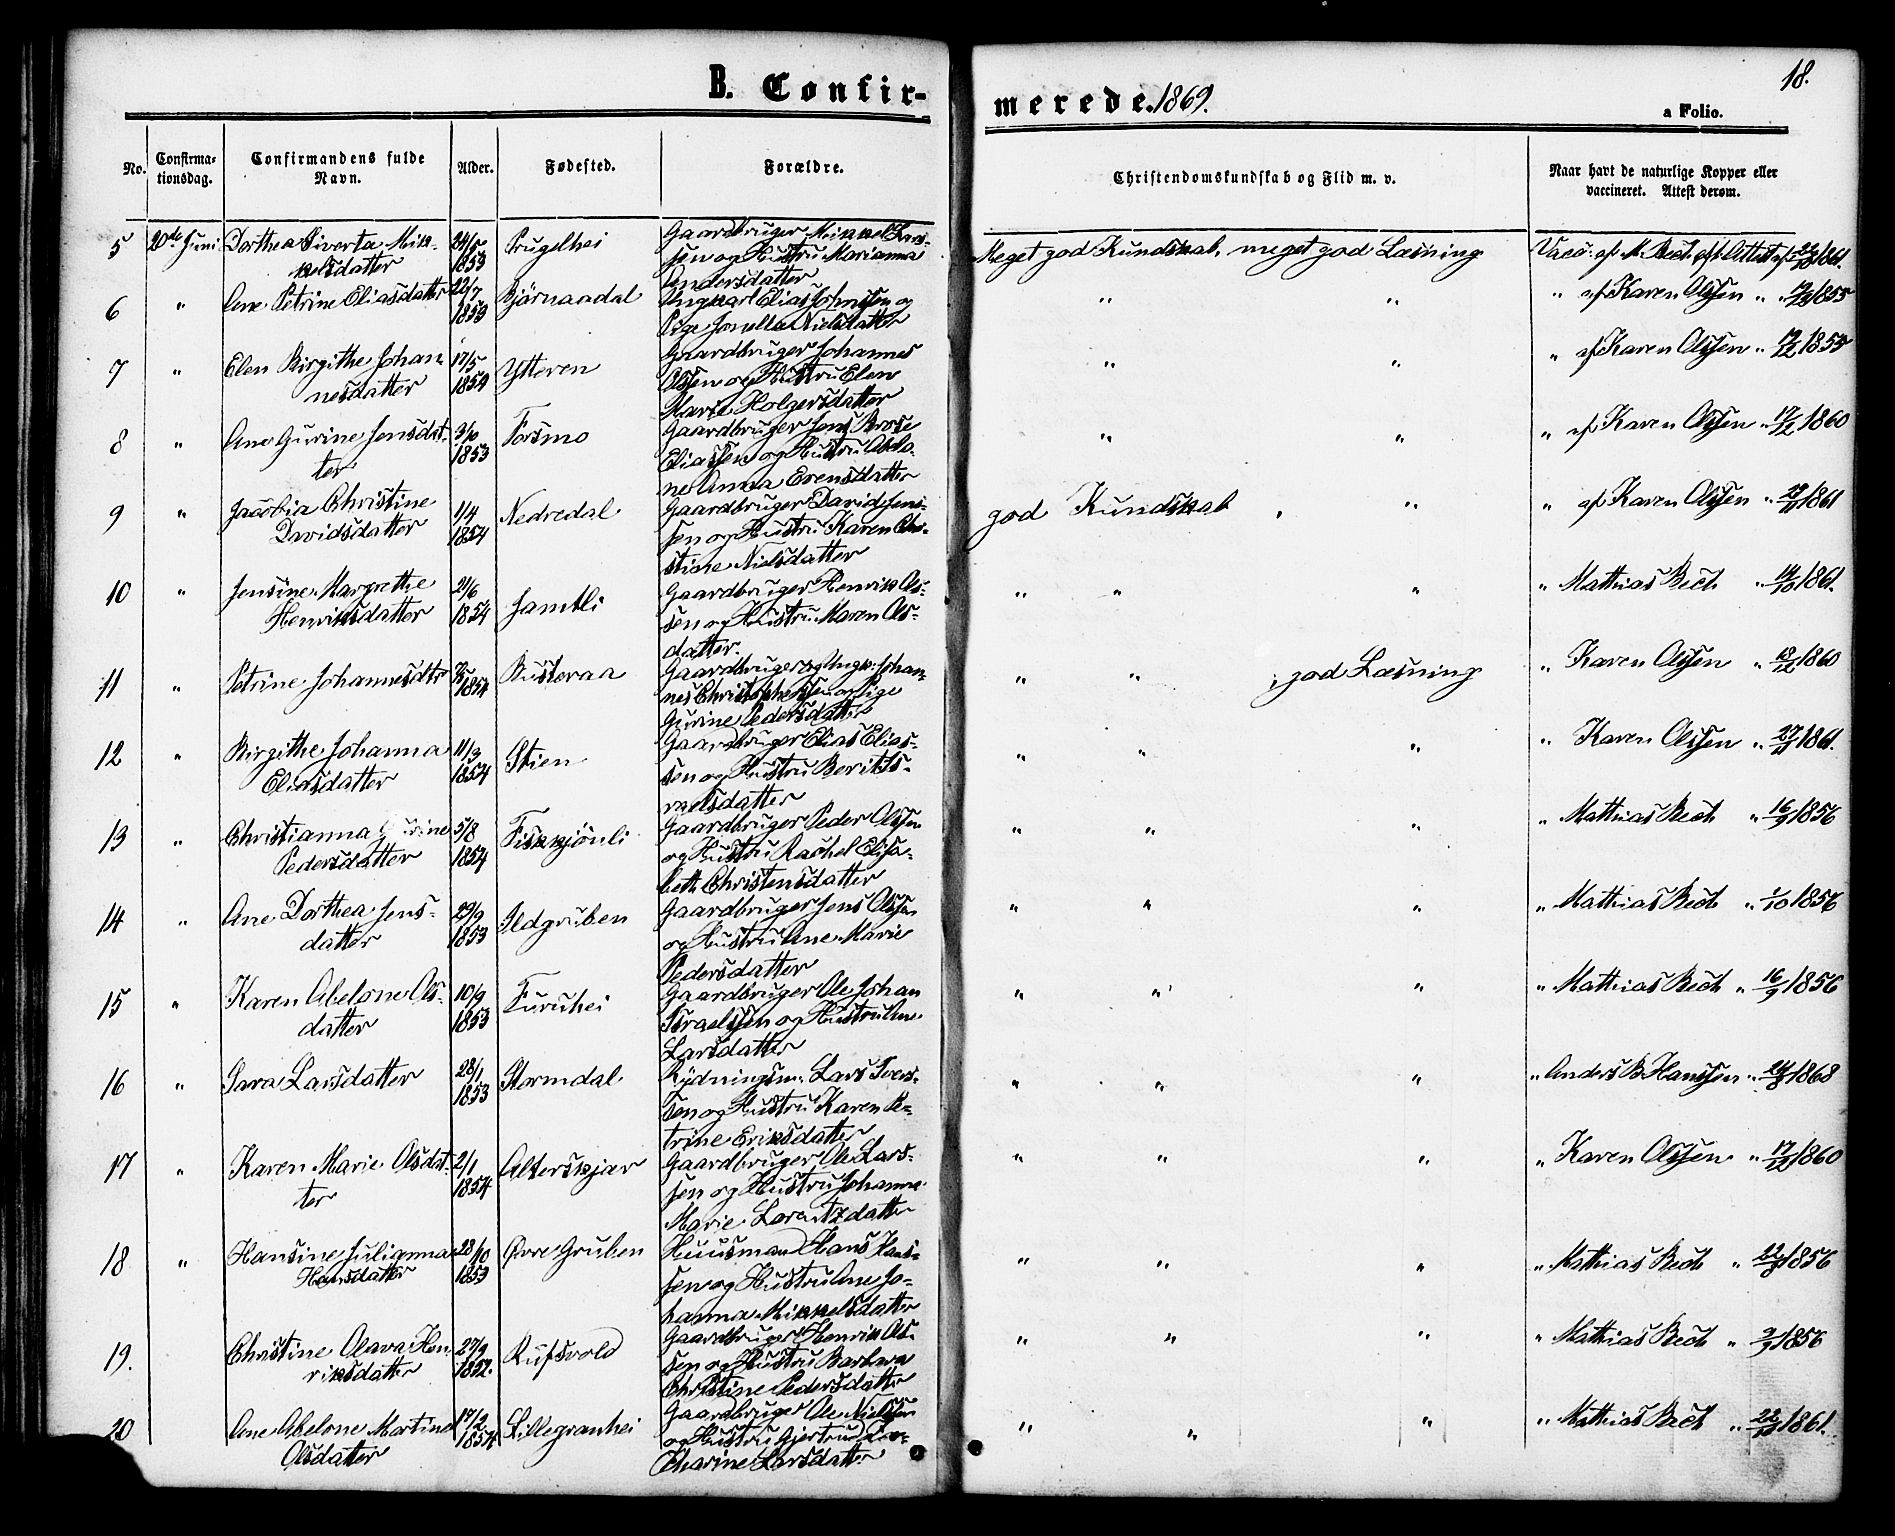 18.
B. Confir-
merede. 1869.
a Folio.
No.
Confirma-
tionsdag.
Confirmandens fulde
Navn.
Alder.
Fødested.
Forældre.
Christendomskundskab og Flid m. v.
Naar havt de naturlige Kopper eller
vaccineret. Attest derom.
5 20de Juni Dorthea Siverta Mik-
kelsdatter
24/5 1853
Prugelhei
Gaardbruger Mikkel Lars-
sen og Hustru Marianna
Andersdatter
Meget god Kundskab, meget god Læsning
Vacc: af M. Bech
1861.
6 " Ane Petrine Eliasdatter
22/7 1853
Bjørnaadal
Ungkarl Elias Johnssen og
Pige Jonella Nielsdatter
" "
" af Karen Olssen " 1855
7 " Elen Birgithe Johan-
nesdatter
17/5 1854
Ytteren
Gaardbruger Johannes
Olssen og Hustru Elen
Marie Holgersdatter
" "
" af Karen Olssen " 1855
8 " Ane Gurine Jensdat-
ter
3/10 1853
Forsmo
Gaardbruger Jens Brose
Eliassen og Hustru Abelo-
ne Anna Evensdatter
" "
" af Karen Olssen " 17/12 1860
9 " Jacobia Christine
Davidsdatter
1/4 1854
Nedredal
Gaardbruger David Jens-
sen og Hustru Karen Chri-
stine Nielsdatter
god Kundskab , "
" af Karen Olssen " 1861
10 " Jensine Margrethe
Henriksdatter
21/6 1854
Jamtli
Gaardbruger Henrik Ols-
sen og Hustru Maren Ols-
datter.
" " "
" Mathias Bech " 14/10 1861.
11 " Petrine Johannesdtr
1854
Busteraa
Gaardbruger og Ungk: Johan-
nes Christophersen og Pige
Gurine Pedersdatter
" " , god Læsning
" Karen Olssen " 18/12 1860
12 " Birgithe Johanna
Eliasdatter
11/3 1854
Stien
Gaardbruger Elias Elias-
sen og Hustru Berit Is-
raelsdatter
" " "
" Karen Olssen " 1861.
13 " Christianna Gurine
Pedersdatter
5/8 1854
Fiskkjønli
Gaardbruger Peder Olssen
og Hustru Rachel Elisa-
beth Christensdatter
" " "
" Mathias Bech " 16/9 1856
14 " Ane Dorthea Jens-
datter
29/9 1853
Ildgruben
Gaardbruger Jens Olssen
og Hustru Ane Marie
Pedersdatter
" " "
" Mathias Bech " 1/10 1856
15 " Karen Abelone Ols-
datter
10/9 1853
Furuhei
Gaardbruger Ole Johan
Israelssen og Hustru Ane
Larsdatter
" " "
" Mathias Bech " 16/9 1856
16 " Sara Larsdatter
28/1 1853
Stormdal
Rydningsm. Lars Ivers-
sen og Hustru Karen Pe-
trine Eriksdatter
" " "
" Anders B. Hanssen " 24/8 1868
17 " Karen Marie Olsdat-
ter
2/1 1854
Alterskjær
Gaardbruger Ole Lars-
sen og Hustru Johanna
Marie Lorentzdatter
" " "
" Karen Olssen " 17/12 1860
18 " Hansine Julianna
Hansdatter
28/10 1853
Øvre Gruben
Huusmand Hans Hans-
sen og Hustru Ane Jo-
hanna Mikkelsdatter
" " "
" Mathias Bech " 1856
19. Christine Olava Hen-
riksdatter
27/9 1852.
Rufsvold
Gaardbruger Henrik Ols-
sen og Hustru Barbara
Christine Pedersdatter
" " "
" Mathias Bech " 9/9 1856
20 Ane Abelone Martine
Olsdatter
17/2 1854
Lillegranhei
Gaardbruger Ole Nielssen
og Hustru Gjertrud
Catharine Larsdatter
" " "
" Mathias Bech " 22/10 1861.